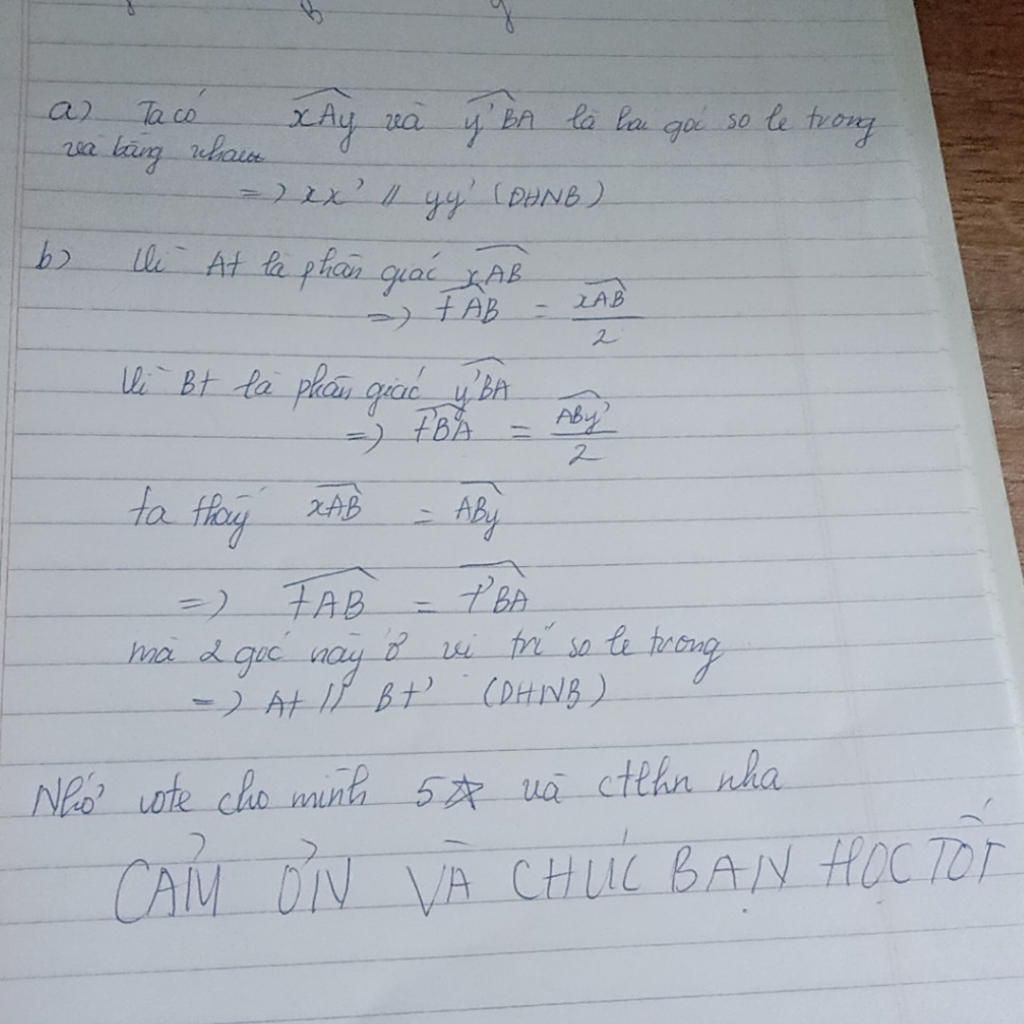 y B y
a) Ta có $\widehat{xAy}$ và $\widehat{y'BA}$ là hai góc so le trong
và bằng nhau
=> xx' // yy' (DHNB)
b) Vì At là phân giác $\widehat{xAB}$
=> $\widehat{tAB}$ = $\frac{\widehat{xAB}}{2}$
Vì Bt là phân giác $\widehat{y'BA}$
=> $\widehat{t'BA}$ = $\frac{\widehat{ABy'}}{2}$
ta thấy $\widehat{xAB}$ = $\widehat{ABy}$
=> $\widehat{tAB}$ = $\widehat{t'BA}$
mà 2 góc này ở vị trí so le trong
=> At // Bt' (DHNB)
Nhớ vote cho mình 5☆ và ctlhn nha
CẢM ƠN VÀ CHÚC BẠN HỌC TỐT